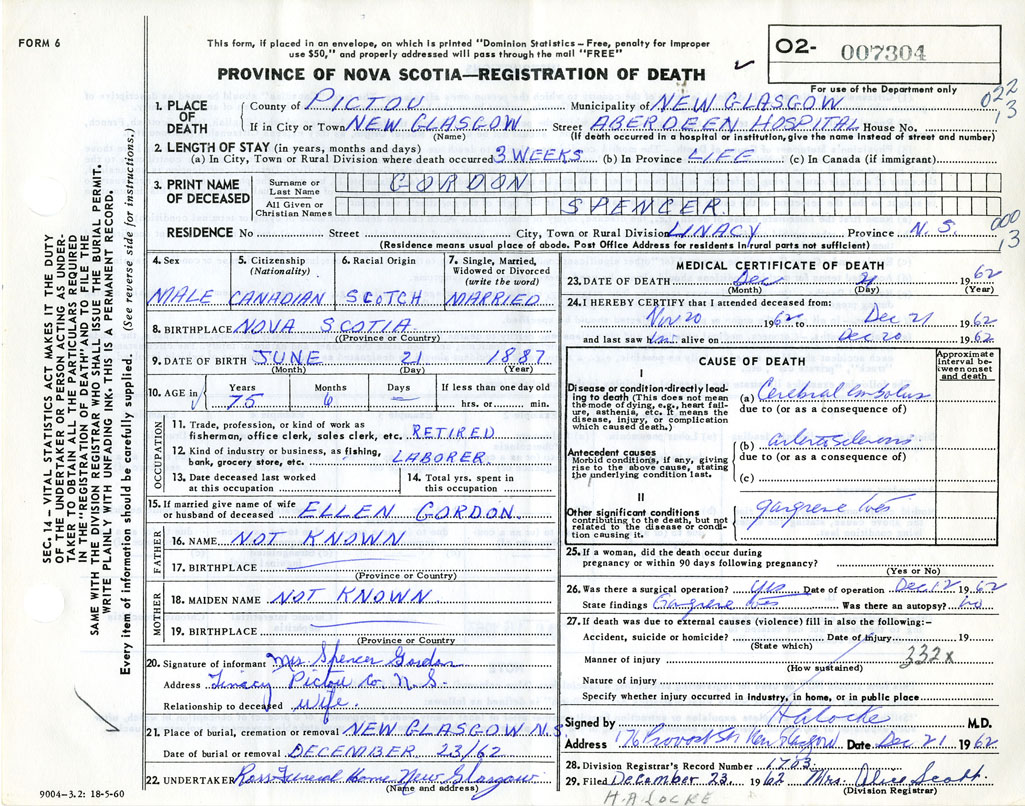 FORM 6
This form, if placed in an envelope, on which is printed "Dominion Statistics – Free, penalty for improper
use $50," and properly addressed will pass through the mail "FREE"
O2- 007304
PROVINCE OF NOVA SCOTIA—REGISTRATION OF DEATH
For use of the Department only
022
13
1. PLACE OF DEATH
County of PICTOU Municipality of NEW GLASGOW
If in City or Town NEW GLASGOW Street ABERDEEN HOSPITAL House No.
(Name) (If death occurred in a hospital or institution, give the name instead of street and number)
2. LENGTH OF STAY (in years, months and days)
(a) In City, Town or Rural Division where death occurred 3 WEEKS (b) In Province LIFE (c) In Canada (if immigrant)
3. PRINT NAME OF DECEASED
Surname or Last Name GORDON
All Given or Christian Names SPENCER
000
13
RESIDENCE No Street City, Town or Rural Division LINACY Province N. S.
(Residence means usual place of abode. Post Office Address for residents in rural parts not sufficient)
SEC. 14 – VITAL STATISTICS ACT MAKES IT THE DUTY
OF THE UNDERTAKER OR PERSON ACTING AS UNDER-
TAKER TO OBTAIN ALL THE PARTICULARS REQUIRED
IN THE "REGISTRATION OF DEATH" AND FILE THE
SAME WITH THE DIVISION REGISTRAR WHO SHALL ISSUE THE BURIAL PERMIT.
WRITE PLAINLY WITH UNFADING INK. THIS IS A PERMANENT RECORD.
Every item of information should be carefully supplied. (See reverse side for instructions.)
4. Sex
MALE
5. Citizenship
(Nationality)
CANADIAN
6. Racial Origin
SCOTCH
7. Single, Married,
Widowed or Divorced
(write the word)
MARRIED
8. BIRTHPLACE NOVA SCOTIA
(Province or Country)
9. DATE OF BIRTH JUNE 21 1887
(Month) (Day) (Year)
10. AGE in Years Months Days If less than one day old
75 6 – hrs. or min.
OCCUPATION
11. Trade, profession, or kind of work as
fisherman, office clerk, sales clerk, etc. RETIRED
12. Kind of industry or business, as fishing,
bank, grocery store, etc. LABORER
13. Date deceased last worked
at this occupation
14. Total yrs. spent in
this occupation
15. If married give name of wife
or husband of deceased ELLEN GORDON
FATHER
16. NAME NOT KNOWN
17. BIRTHPLACE
(Province or Country)
MOTHER
18. MAIDEN NAME NOT KNOWN
19. BIRTHPLACE
(Province or Country)
20. Signature of informant Mrs Spencer Gordon
Address Linacy Pictou Co. N. S.
Relationship to deceased wife.
21. Place of burial, cremation or removal NEW GLASGOW N.S.
Date of burial or removal DECEMBER 23/62
22. UNDERTAKER Ross Funeral Home New Glasgow
(Name and address)
9004–3.2: 18-5-60
MEDICAL CERTIFICATE OF DEATH
23. DATE OF DEATH Dec 21 1962
(Month) (Day) (Year)
24. I HEREBY CERTIFY that I attended deceased from:
Nov 20 1962 to Dec 21 1962
and last saw him alive on Dec 20 1962
CAUSE OF DEATH
Approximate
interval be-
tween onset
and death
I
Disease or condition directly lead-
ing to death (This does not mean
the mode of dying, e.g., heart fail-
ure, asthenia, etc. It means the
disease, injury, or complication
which caused death.)
(a) Cerebral embolus
due to (or as a consequence of)
Antecedent causes
Morbid conditions, if any, giving
rise to the above cause, stating
the underlying condition last.
(b) arteriosclerosis
due to (or as a consequence of)
(c)
II
Other significant conditions
contributing to the death, but not
related to the disease or condi-
tion causing it.
gangrene toes
25. If a woman, did the death occur during
pregnancy or within 90 days following pregnancy?
(Yes or No)
26. Was there a surgical operation? yes Date of operation Dec 12 1962
State findings Gangrene toes Was there an autopsy? no
27. If death was due to external causes (violence) fill in also the following:–
Accident, suicide or homicide? Date of injury 19
(State which)
Manner of injury 332x
(How sustained)
Nature of injury
Specify whether injury occurred in industry, in home, or in public place
Signed by HALocke M.D.
Address 176 Provost St New Glasgow Date Dec 21 1962
28. Division Registrar's Record Number 1703
29. Filed December 23. 1962 Mrs. Alice Scott
(Division Registrar)
H.A. LOCKE